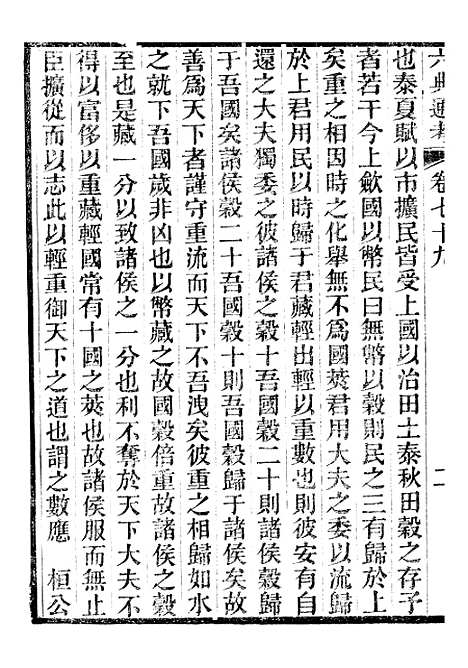 六典通考 卷七十九 二
也泰夏賦以市擴民皆受上國以治田土泰秋田穀之存予
者若干今上斂國以幣民曰無幣以穀則民之三有歸於上
矣重之相因時之化舉無不爲國筴君用大夫之委以流歸
於上君用民以時歸于君藏輕出輕以重數也則彼安有自
還之大夫獨委之彼諸侯之穀十吾國穀二十則諸侯穀歸
于吾國矣諸侯穀二十吾國穀十則吾國穀歸于諸侯矣故
善爲天下者謹守重流而天下不吾洩矣彼重之相歸如水
之就下吾國歲非凶也以幣藏之故國穀倍重故諸侯之穀
至也是藏一分以致諸侯之一分也利不奪於天下大夫不
得以富侈以重藏輕國常有十國之筴也故諸侯服而無止
臣擴從而以志此以輕重御天下之道也謂之數應 桓公